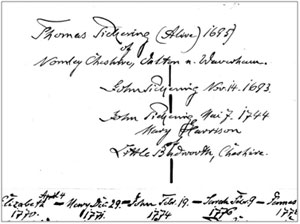 Thomas Pickering (Alive) 1685
of
Norley Cheshire, Dalton n. Waverham.
John Pickering Nov. 14. 1683.
John Pickering Mai 7. 1744
Mary Harrison
Little Budworth, Cheshire.
Elizabeth April 4 — Mary Dec. 29. — John Feb. 19. — Sarah Feb. 9 —
1770. 1771. 1774 1776.